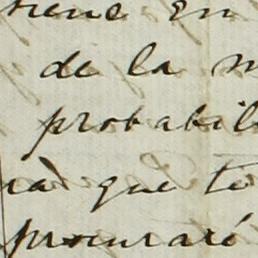 tiene en
de la m
probabil
rà que te
procuraró